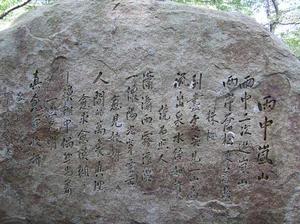 雨中嵐山
雨中二次遊嵐山
兩岸蒼松夾着
幾株櫻
到盡處突見一山高
流出泉水綠如許
繞石照人
瀟瀟雨霧濛濃
一線陽光穿雲出
愈見姣妍
人間的萬象真理
愈求愈模糊
模糊中偶然見着
一點光明
真愈覺姣妍